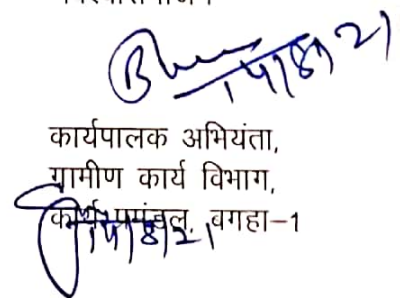 14/8/21
कार्यपालक अभियंता,
ग्रामीण कार्य विभाग,
कार्य प्रमंडल, वगहा-1
14/8/21